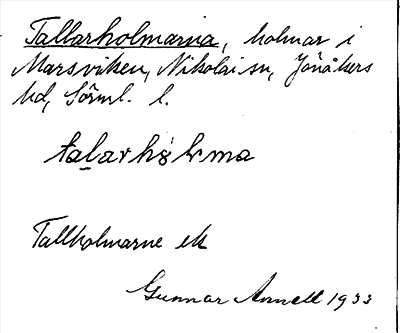 Tallarholmarna, holmar i
Marsviken, Nikolai sn, Jönåkers
hd, Sörml. l.
talarhȯlrma
Tallholmarne ek
Gunnar Arnell 1933